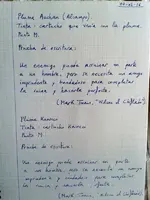 Pluma Auchan (Alcampo)
Tinta cartucho que venía con la pluma.
Punto M.
Prueba de escritura:
Un enemigo puede arruinar en parte
a un hombre, pero se necesita un amigo
imprudente y bondadoso para completar
la ruina y hacerla perfecta.
(Mark Twain,
Pluma
Tinta cartucho
Punto M.
Prueba de escritura:
Un enemigo puede arruinar en parte
a un hombre, pero se necesita un amigo
imprudente y bondadoso para completar
la ruina y hacerla perfecta.
(Mark Twain,